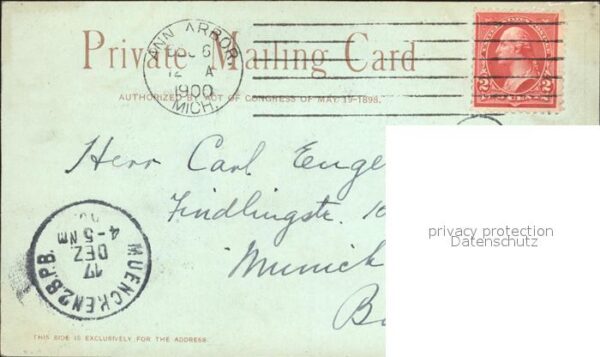 Private Mailing Card
AUTHORIZED BY ACT OF CONGRESS OF MAY 19-1898.
ANN ARBOR,
6
12 A
1900
MICH.
2 2
Herr Carl Enge
Findlingstr. 10
Munich
B
privacy protection
Datenschutz
MUENCHEN 2.B.P.B.
17
DEZ.
4-5 NM
00
THIS SIDE IS EXCLUSIVELY FOR THE ADDRESS